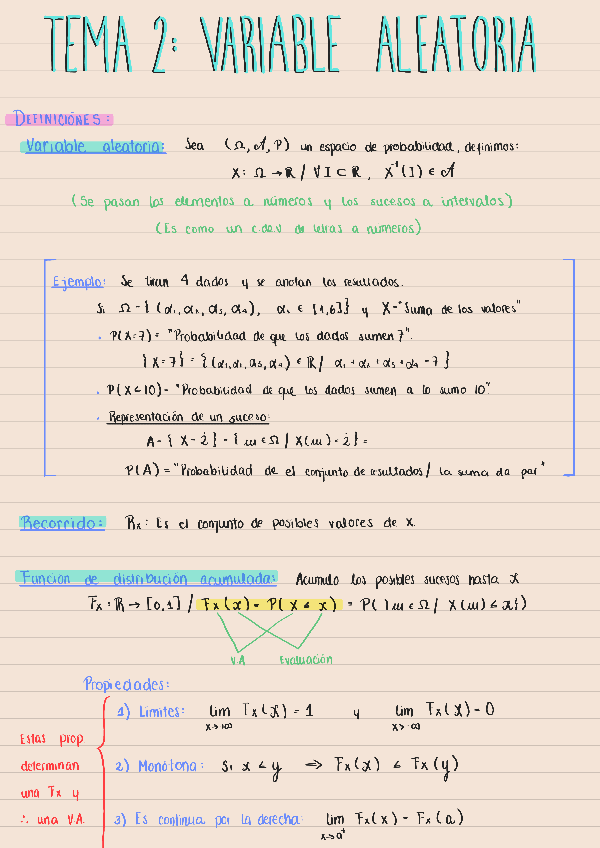 TEMA 2: VARIABLE ALEATORIA
DEFINICIÓNES:
Variable aleatoria: Sea (Ω, 𝒜, P) un espacio de probabilidad, definimos:
X: Ω → ℝ / ∀ I ⊂ ℝ, X⁻¹(I) ∈ 𝒜
(Se pasan los elementos a números y los sucesos a intervalos)
(Es como un c.de.v de letras a números)
Ejemplo: Se tiran 4 dados y se anotan los resultados.
Si Ω = { (α₁, α₂, α₃, α₄), αᵢ ∈ [1,6]} y X = "Suma de los valores"
· P(X=7) = "Probabilidad de que los dados sumen 7".
{X=7} = {(α₁, α₂, α₃, α₄) ∈ ℝ / α₁ + α₂ + α₃ + α₄ = 7}
· P(X≤10) = "Probabilidad de que los dados sumen a lo sumo 10".
· Representación de un suceso:
A = { X = 2̇ } = { ω ∈ Ω / X(ω) = 2̇ } =
P(A) = "Probabilidad de el conjunto de resultados / la suma da par"
Recorrido: Rx: Es el conjunto de posibles valores de X.
Función de distribución acumulada: Acumulo los posibles sucesos hasta x
Fx: ℝ → [0,1] / Fx(x) = P(X ≤ x) = P({ω ∈ Ω / X(ω) ≤ x})
V.A Evaluación
Propiedades:
1) Límites: lim Fx(x) = 1 y lim Fx(x) = 0
x→+∞ x→-∞
Estas prop
determinan
una Fx y
∴ una V.A.
2) Monótona: Si x < y ⟹ Fx(x) ≤ Fx(y)
3) Es continua por la derecha: lim Fx(x) = Fx(a)
x→a⁺